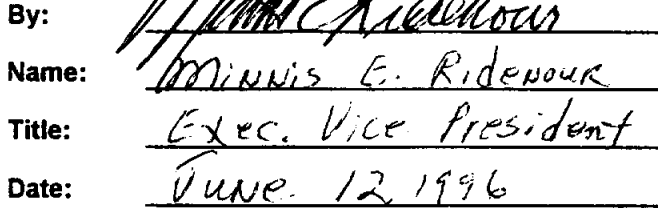 By: Minnis E. Ridenour
Name: Minnis E. Ridenour
Title: Exec. Vice President
Date: June 12 1996